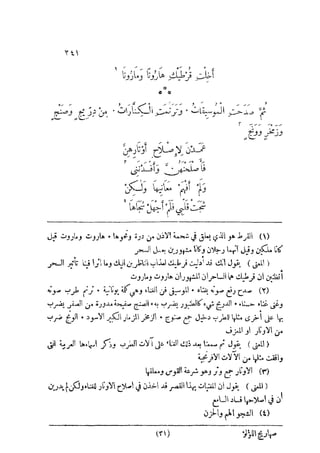 ٢٤١
أخلت قرطيك هاروتا وماروتا ١
ثم صدحت الموسيقات ، وترنمت الكنارات ، من دريج وصنج
وزمخر وونج ٢
عمدن لإصلاح أوتارهن
فأصلحنهن وأفسدنني ٣
ولم أفهم معانيها ولكن
شجت قلبي فلم أجهل شجاها ٤
(١) القرط هو الذي يعلق في شحمة الاذن من درة ونحوها ٠ هاروت وماروت قيل
كانا ملكين وقيل انهما رجلان وكانا مشهورين بعمل السحر
(المعنى) يقول انك قد أدليت قرطيك لعذاب الناظرين اليك وما أثرا فينا تأثير السحر
أتظنين ان قرطيك هما الساحران المشهوران هاروت وماروت
(٢) صدح رفع صوته بغناء ٠ الموسيقى فن الغناء وهي كلمة يونانية ٠ ترنم طرب صوته
وغنى غناء حسنا ٠ الدريج شيء كالطنبور يضرب به ٠ الصنج صفيحة مدورة من الصفر يضرب
بها على أخرى مثلها للطرب دخيل جمع صنوج ٠ الزمخر المزمار الكبير الاسود ٠ الونج ضرب
من الاوتار او المعزف
(المعنى) يقول ثم سمعنا بعد ذلك الغناء على آلات الطرب وذكر اسماءها العربية التي
وافقت مثلها من الآلات الافرنجية
(٣) الاوتار جمع وتر وهو شرعة القوس ومعلقها
(المعنى) يقول ان المغنيات بهذا القصر قد اخذن في اصلاح الاوتار للغناء ولكن لم يدرين
أن في اصلاحها فساد السامع
(٤) الشجو الهم والحزن
صهاريج اللؤلؤ
(٣١)